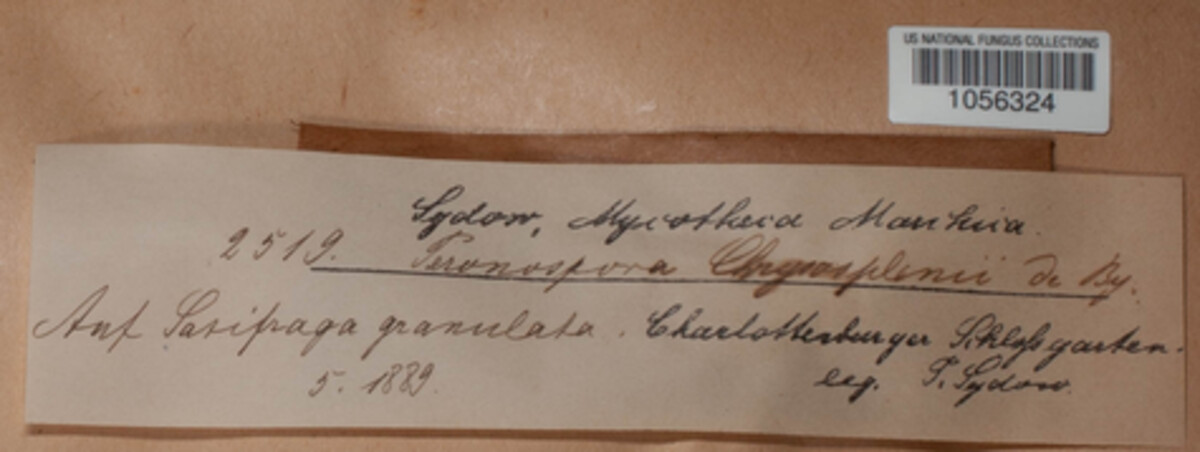 US NATIONAL FUNGUS COLLECTIONS
1056324
Sydow, Mycotheca Marchica.
2519. Peronospora Chrysosplenii de By.
Auf Saxifraga granulata. Charlottenburger Schloßgarten.
5. 1889. leg. P. Sydow.